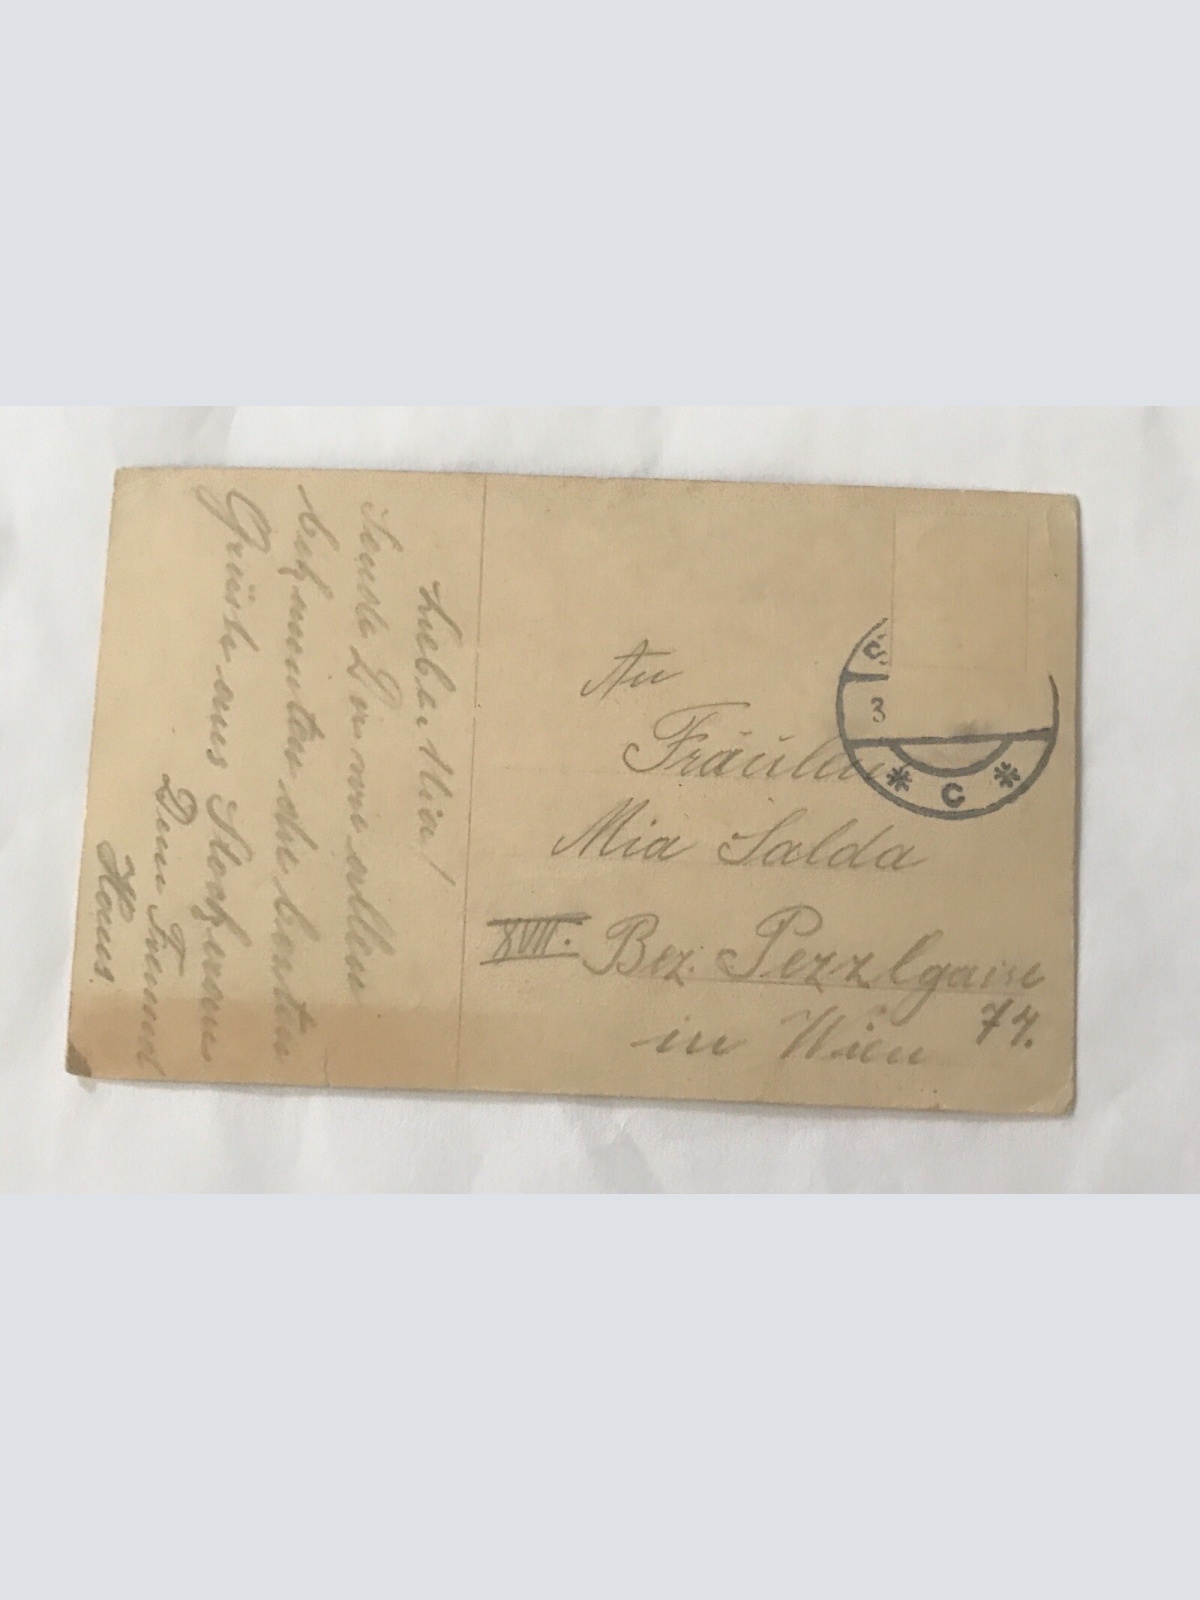 Liebe Mia!
Sende Dir wie allen
bekannten die besten
Grüße aus Stockerau
Dein Freund
Hans.
An
Fräulein
Mia Salda
XVII. Bez. Pezzlgasse
74.
in Wien
3
* C *